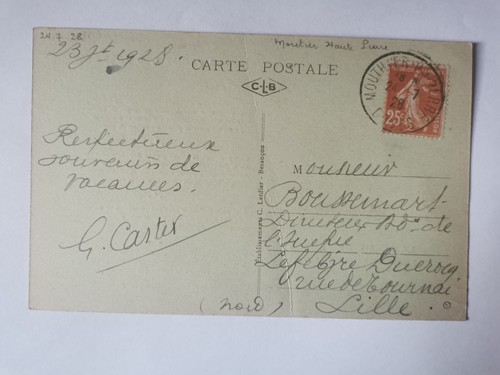 24.7.28
23 Jt 1928.
Moutier Haute Pierre
CARTE POSTALE
C.L.B
MOUTHIER-HTE-PIERRE
28
25c
Respectueux
souvenirs de
vacances.
G. Cartex
Etablissements C. Lardier - Besançon
Monsieur
Boussemart
Directeur de
Lefebvre Ducrocq
rue de Tournai
Lille.
(Nord)